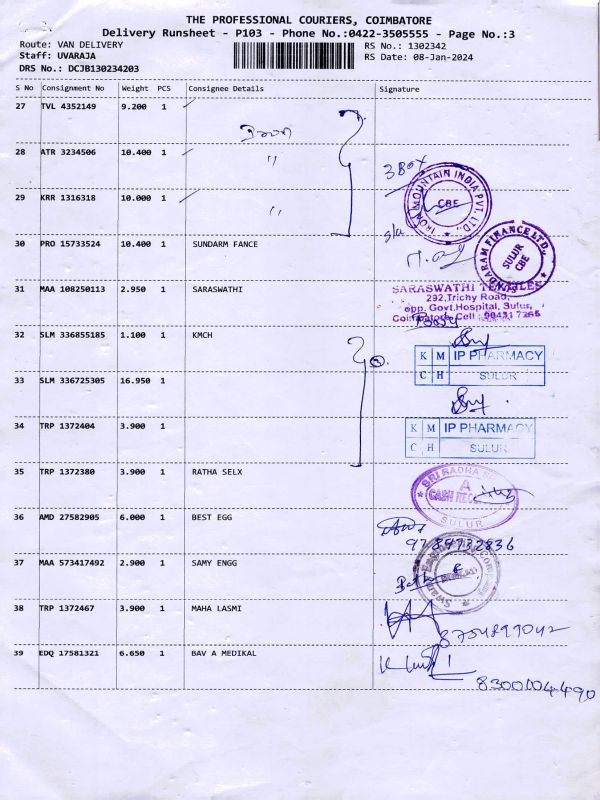 THE PROFESSIONAL COURIERS, COIMBATORE
Delivery Runsheet - P103 - Phone No.:0422-3505555 - Page No.:3
Route: VAN DELIVERY
RS No.: 1302342
Staff: UVARAJA
RS Date: 08-Jan-2024
DRS No.: DCJB130234203
S No Consignment No Weight PCS Consignee Details Signature
27 TVL 4352149 9.200 1
28 ATR 3234506 10.400 1 〃
3 Box
29 KRR 1316318 10.000 1 〃
MOUNTAIN INDIA PVT. LTD.,
CBE
30 PRO 15733524 10.400 1 SUNDARM FANCE
SUNDARAM FINANCE LTD.,
SULUR
CBE
31 MAA 108250113 2.950 1 SARASWATHI
SARASWATHI TEXTILES
292,Trichy Road,
opp. Govt.Hospital, Sulur,
32 SLM 336855185 1.100 1 KMCH
3
K M
C H
IP PHARMACY
SULUR
33 SLM 336725305 16.950 1
34 TRP 1372404 3.900 1
K M
C H
IP PHARMACY
SULUR
35 TRP 1372380 3.900 1 RATHA SELX
SRI RADHA
A
CASH
SULUR
36 AMD 27582905 6.000 1 BEST EGG
9789732836
37 MAA 573417492 2.900 1 SAMY ENGG
38 TRP 1372467 3.900 1 MAHA LASMI
8754899042
39 EDQ 17581321 6.650 1 BAV A MEDIKAL
8300004490